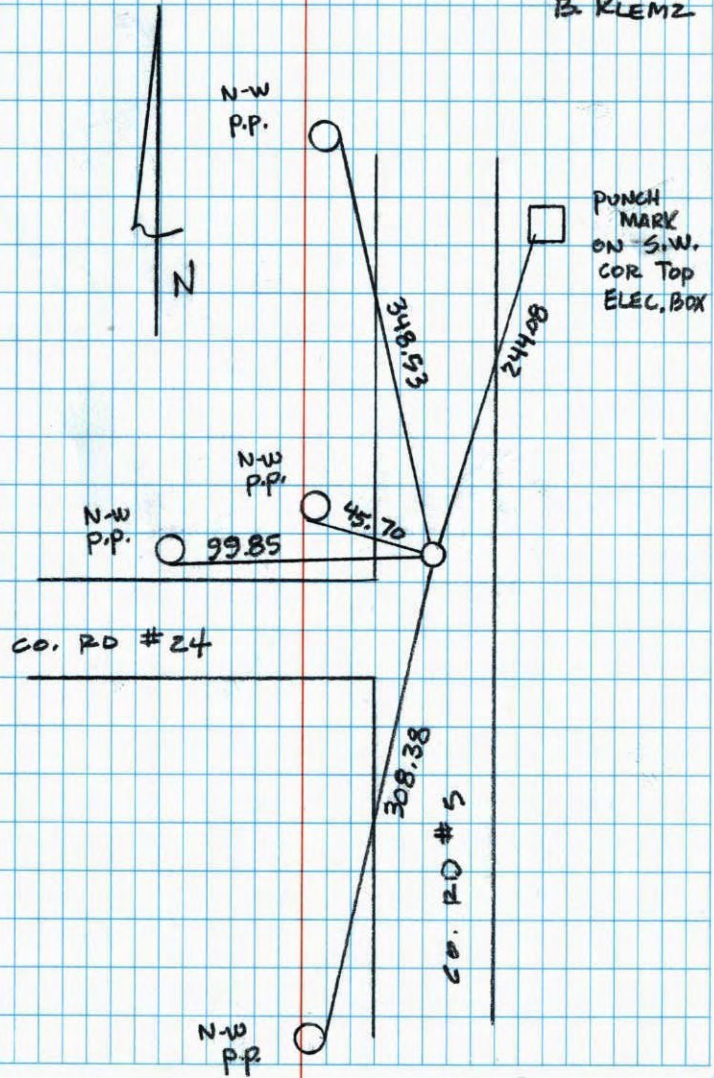 B. KLEMZ
N-W
P.P.
N
PUNCH
MARK
ON S.W.
COR TOP
ELEC. BOX
348.53
244.08
N-W
P.P.
45.70
N-W
P.P.
99.85
CO. RD #24
308.38
CO. RD #5
N-W
P.P.